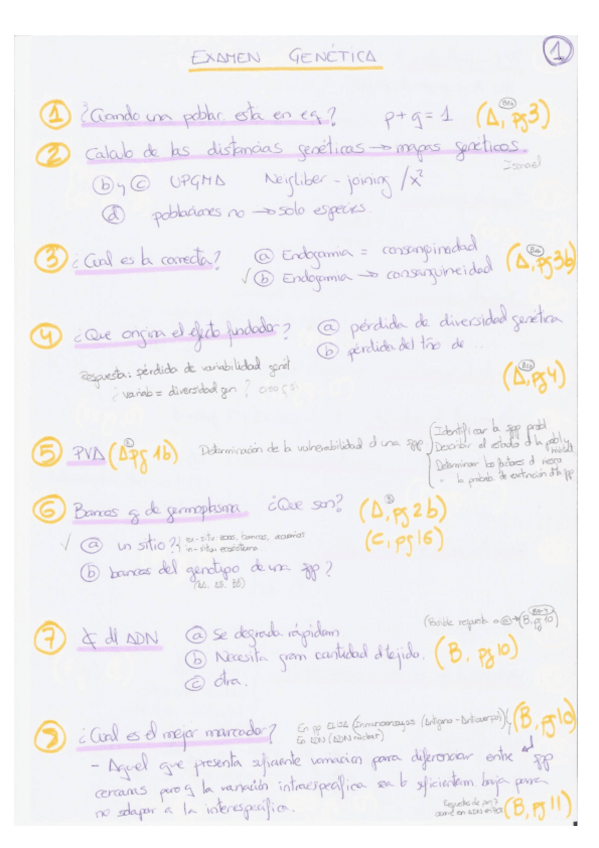 EXAMEN GENÉTICA
1
① ¿Cuando una poblac. está en eq.? p+q=1 (A, pg 3)
② Calculo de las distancias genéticas → mapas genéticos.
Ismael
ⓑ y ⓒ UPGMA Neigliber - joining / x²
ⓓ poblaciones no → solo especies
③ ¿Cual es la correcta? ⓐ Endogamia = consanguinidad
√ ⓑ Endogamia → consanguineidad (A, pg 3b)
④ ¿Que origina el efecto fundador? ⓐ pérdida de diversidad genética
ⓑ pérdida del tño de ..
Respuesta: pérdida de variabilidad genét
¿variab = diversidad gen?
(A, pg 4)
⑤ PVA (A pg 1b) Determinación de la vulnerabilidad d una spp
Identificar la spp probl
Describir el estado d la pobl y
Determinar los factores d riesgo
" la probab. de extinción d la spp
⑥ Bancos g de germoplasma ¿Que son? (A, pg 2b)
(C, pg 16)
√ ⓐ un sitio?
ex-situ zoos, bancos, acuarios
in-situ ecosistema
ⓑ bancos del genotipo de una spp?
⑦ ADN ⓐ Se degrada rápidam
(Posible respuesta
ⓑ Necesita gran cantidad d tejido. (B, pg 10)
ⓒ otra.
¿Cual es el mejor marcador? (B, pg 10)
En pp ELISA (Inmunoensayos (Antígeno - Anticuerpo))
En ADN (ADN nuclear)
- Aquel que presenta suficiente variacion para diferenciar entre spp
cercanas pero q la variación intraespecífica sea lo suficientem baja para
no solapar a la interespecífica.
(B, pg 11)